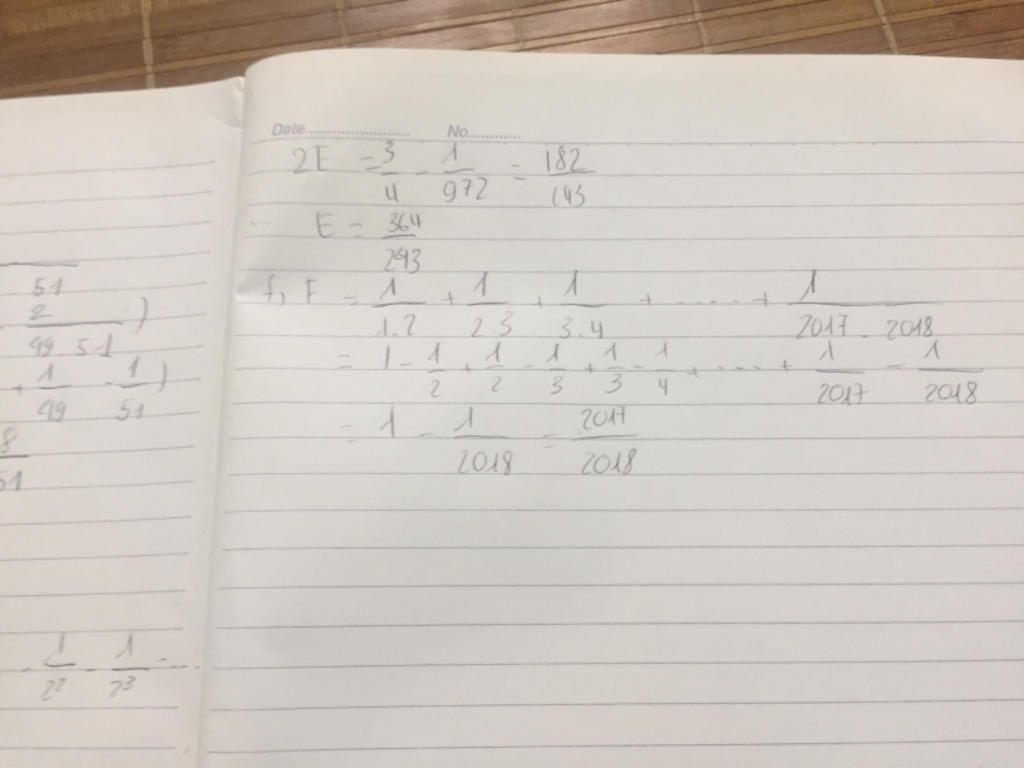 51
2 )
49.51
+ 1/49 - 1/51 )
8
51
1/2² - 1/2³ - ...
Date........................ No............
2E = 3/4 - 1/972 = 182/243
E = 364/243
f, F = 1/1.2 + 1/2.3 + 1/3.4 + ..... + 1/2017.2018
= 1 - 1/2 + 1/2 - 1/3 + 1/3 - 1/4 + .... + 1/2017 - 1/2018
= 1 - 1/2018 = 2017/2018